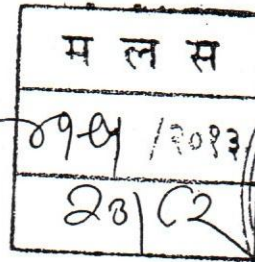 म ल स
७१५ /२०१३
२७/८२